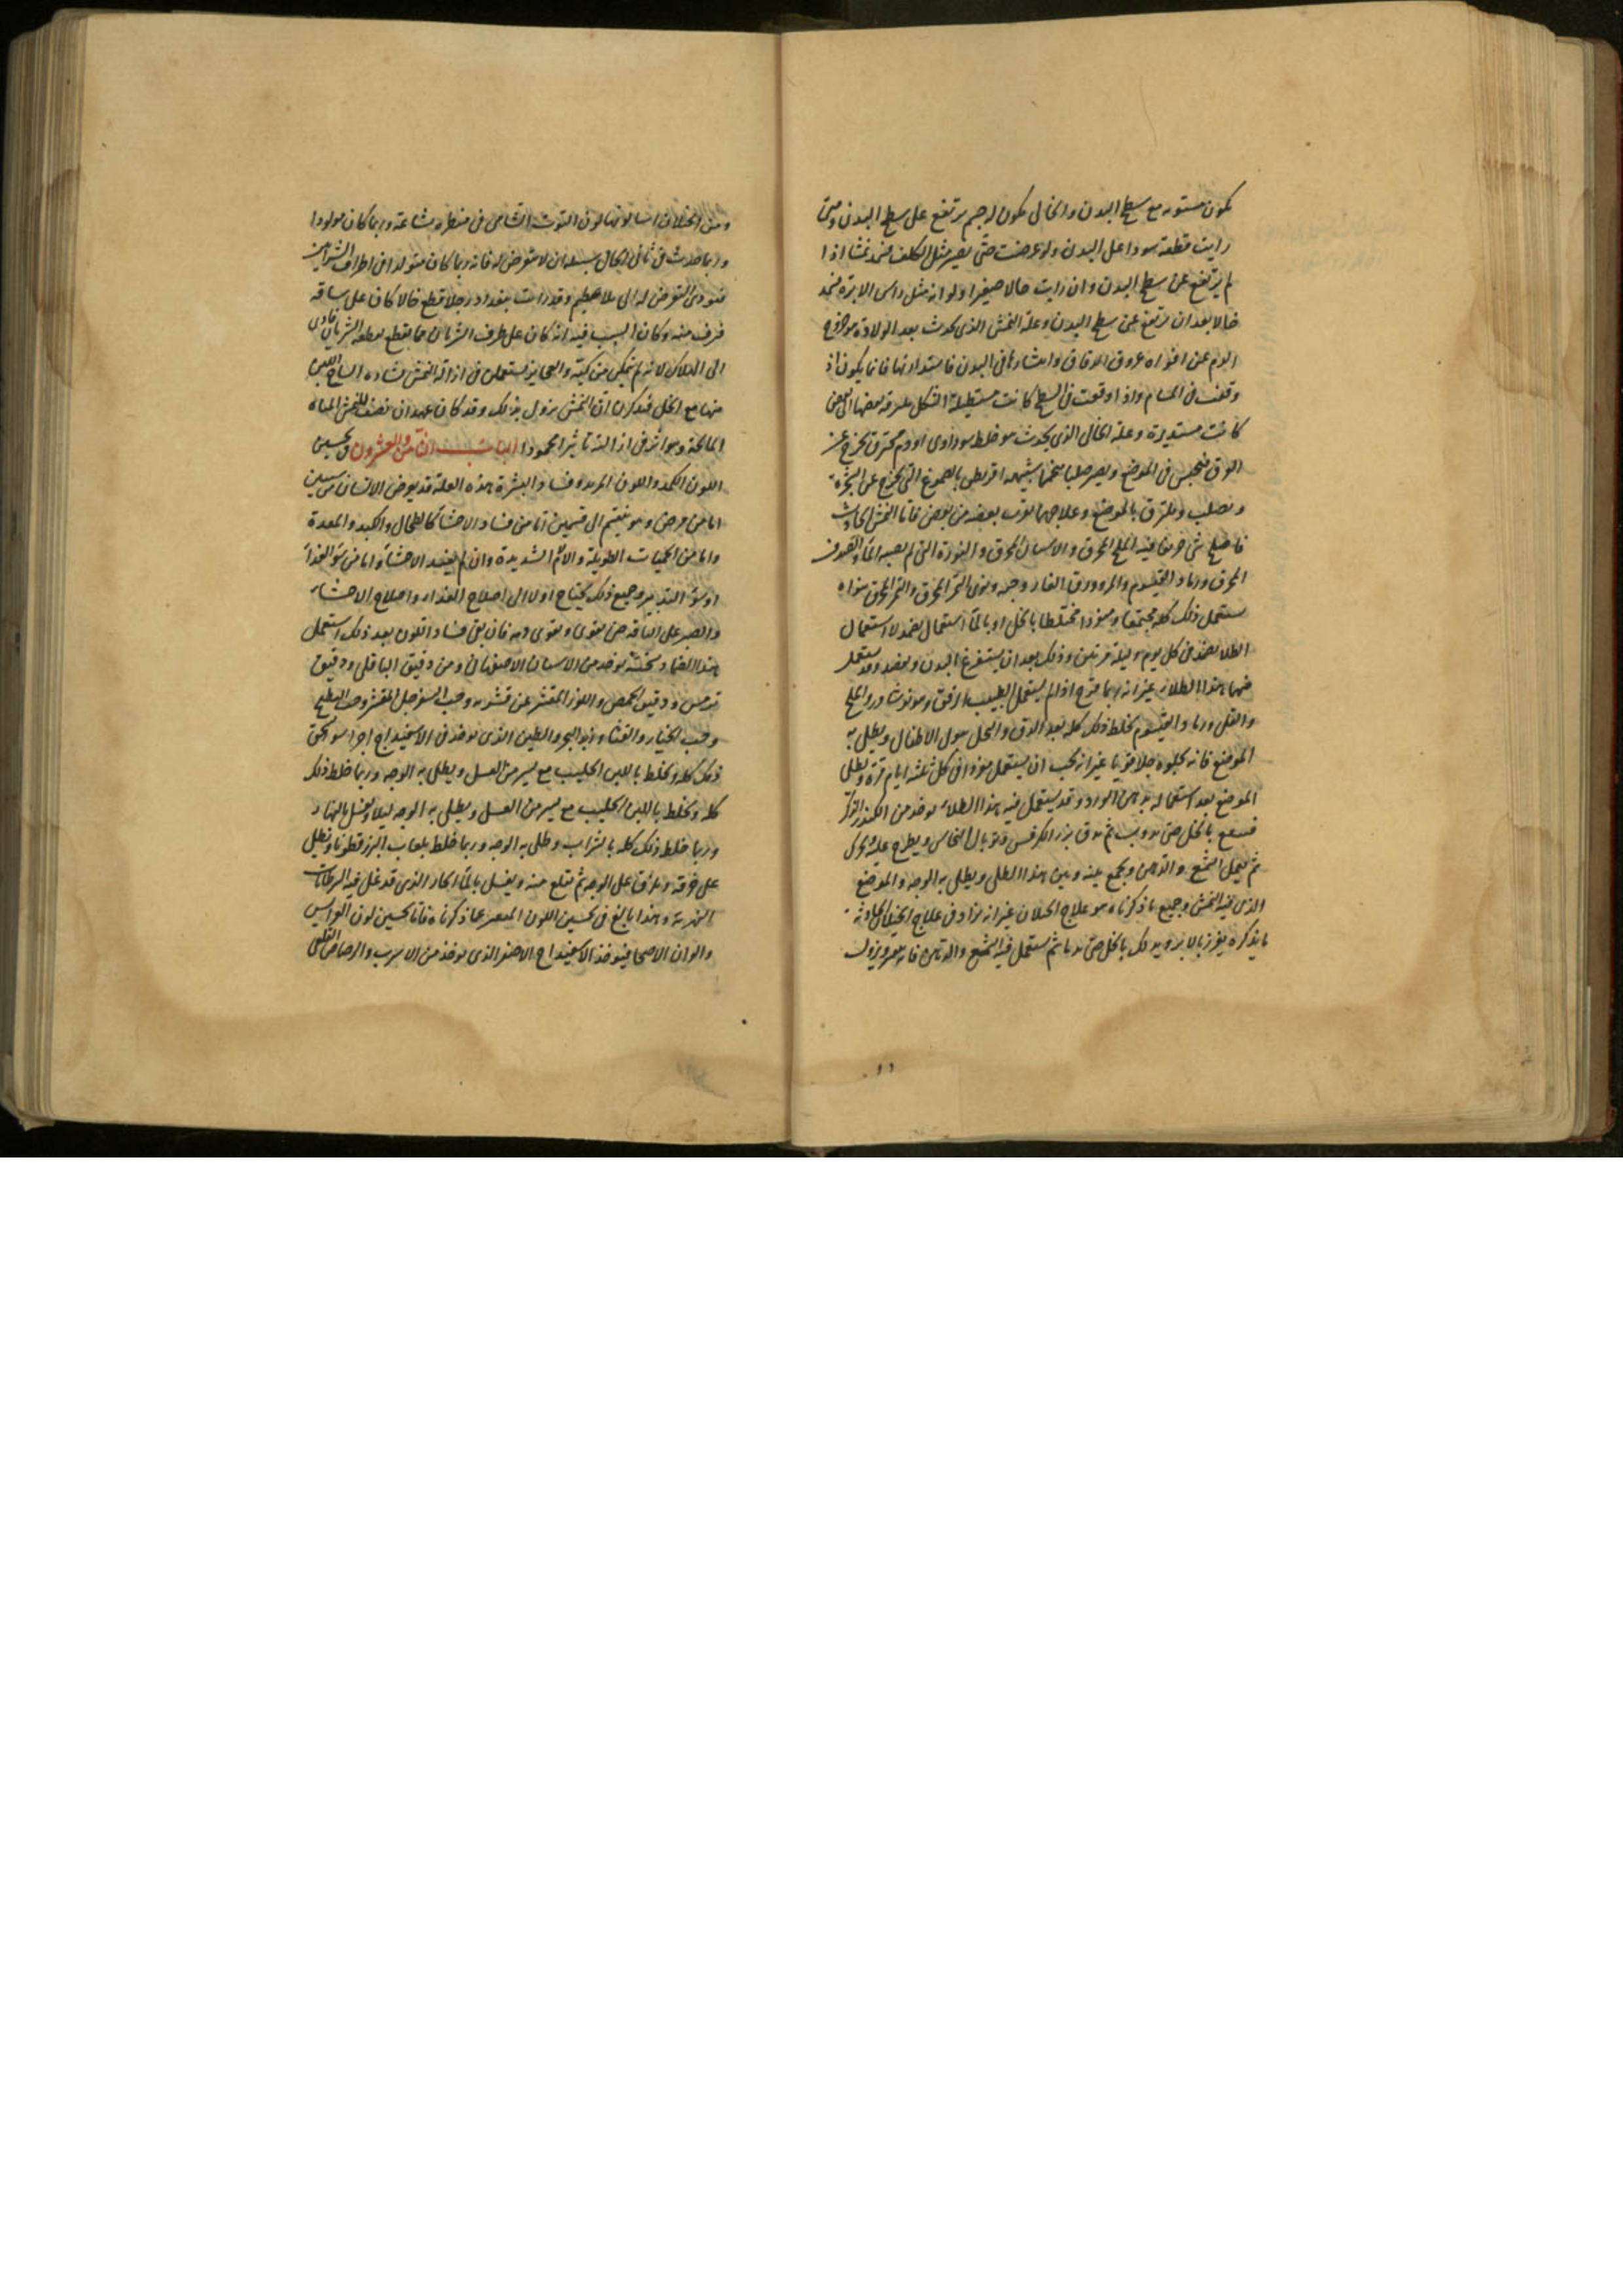 يكون مستويه مع سطح البدن والخال يكون له جسم يرتفع على سطح البدن ومتى
رايت قطعة سودا على البدن ولو عرضت حتى تصير مثل الكلف نمشا اذا
لم يرتفع عن سطح البدن وان رايت خالا صغيرا ولو انه مثل راس الابرة
خالا بعد ان يرتفع عن سطح البدن وعلة النمش الذى يحدث بعد الولادة هو خروج
الدم عن افواه عروق الدقاق وانتشارها فى البدن فاستدارتها فانما يكون اذ
وقفت فى المسام واذا وقعت فى السطح كانت مستطيلة الشكل بعضها الى بعض
كانت مستديرة وعلة الخال الذى يحدث هو خلط سوداوى او دم محترق يخرج عن
العرق فيحبس فى الموضع ويصير صلبا شبيهه بالصموغ التى تخرج عن الشجرة
ويصلب ويلتزق بالموضع وعلاجهما يقرب بعضه من بعض فاما النمش الحادث
فاصلح شى جربنا فيه الملح المحرق والاشنان المحرق والنورة التى لم يصبه الما والصدف
المحرق ورماد القيسوم وورق الغار وحبه ونوى التمر المحرق والتمر المحرق بنواه
يستعمل ذلك كله مجتمعا ومفردا مختلطا بالخل او بالما استعمال لا استعمال
الطلا فى كل يوم وليلة مرتين وذلك بعد ان يستفرغ البدن ويفصد وقد يستعمل
فيها هذا الطلا غير انه ربما قرح اذا لم يستعمل الطبيب الرفق وهو نوشادر والملح
والقلى ورماد القيسوم يخلط ذلك كله بعد الدق والنخل ببول الاطفال ويطلى به
الموضع فانه يجلوه جلا قويا غير انه يجب ان يستعمل هذا فى كل ثلثة ايام مرة ويطلى
الموضع بعد استعماله بدهن الورد وقد يستعمل فيه هذا الطلا يوخذ من الكندر
بالخل حتى يذوب ثم يدق بزر الكرفس وتوبال النحاس ويطرح عليه ويحرك
ثم يعمل الشمع والدهن ويجمع بينه وبين هذا الطلى ويطلى به الوجه والموضع
الذى فيه النمش وجميع ما ذكرناه هو علاج الخيلان غير انه يزاد فى علاج الخيلان الحادثة
ما يذكره يغرز بالابر ويدلك بالخل حتى يدما ثم يستعمل فيه الشمع والدهن فانه يتغير ويزول
ومن الخيلان لونها لون التوث الشامى فى منظره بشاعة وربما كان مولودا
وربما حدث فى ثانى الحال لا يتعرض له فانه ربما كان متولدا فى اطراف الشرايين
فيودى التعرض له الى بلا عظيم وقد رايت ببغداد رجلا قطع خالا كان على ساقه
فنزف منه وكان السبب فيه انه كان على طرف الشريان فلما قطع الشريان فادى
الى الهلاك لانه لم يتمكن من كيه والعجايز يستعملن فى ازالة النمش
منها مع الخل فيذكرن ان النمش يزول بذلك وقد كان للنمش المياه
المالحة وهو اثر فى ازالته تاثيرا محمودا الباب الثامن والعشرون فى تحسين
اللون الكمد واللون وفساد البشرة هذه العلة قد يعرض الانسان من شيين
اما من مرض وهو ينقسم الى قسمين اما من فساد الاحشا كالطحال والكبد والمعدة
واما من الحميات الطويلة والالم الشديدة وان لم يفسد الاحشا واما من سو الغذا
او سو التدبير وجميع ذلك يحتاج اولا الى اصلاح الغذا واصلاح الاحشا
والصبر على الناقه حتى يقوى فان بقى فساد اللون بعد ذلك استعمل
هذا الضماد يوخذ من الاشنان الاصفهانى ومن دقيق الباقلى ودقيق
ترمس ودقيق الحمص واللوز المقشر عن قشره وحب السفرجل المقشر وحب البطيخ
وحب الخيار والقثا وزبد البحر والطين الذى يوخذ فى الاسفيداج اجزا سوا يسحق
ذلك كله ويخلط باللبن الحليب مع يسير من العسل ويطلى به الوجه وربما خلط ذلك
كله ويخلط باللبن الحليب مع يسير من العسل ويطلى به الوجه ليلا ويغسل بالنهار
وربما خلط ذلك كله بالشراب وطلى به الوجه وربما خلط بلعاب البزرقطونا وتطلى
على خرقة ويلزق على الوجه ثم تقلع منه ويغسل بالما الحار الذى قد غلى فيه السرطانات
النهرية وهذا بالغ فى تحسين اللون المتغير عما ذكرناه فاما تحسين لون العرايس
والوان الاصحا فيوخذ الاسفيداج الاصفر الذى يوخذ من الاسرب والرصاص القلعى